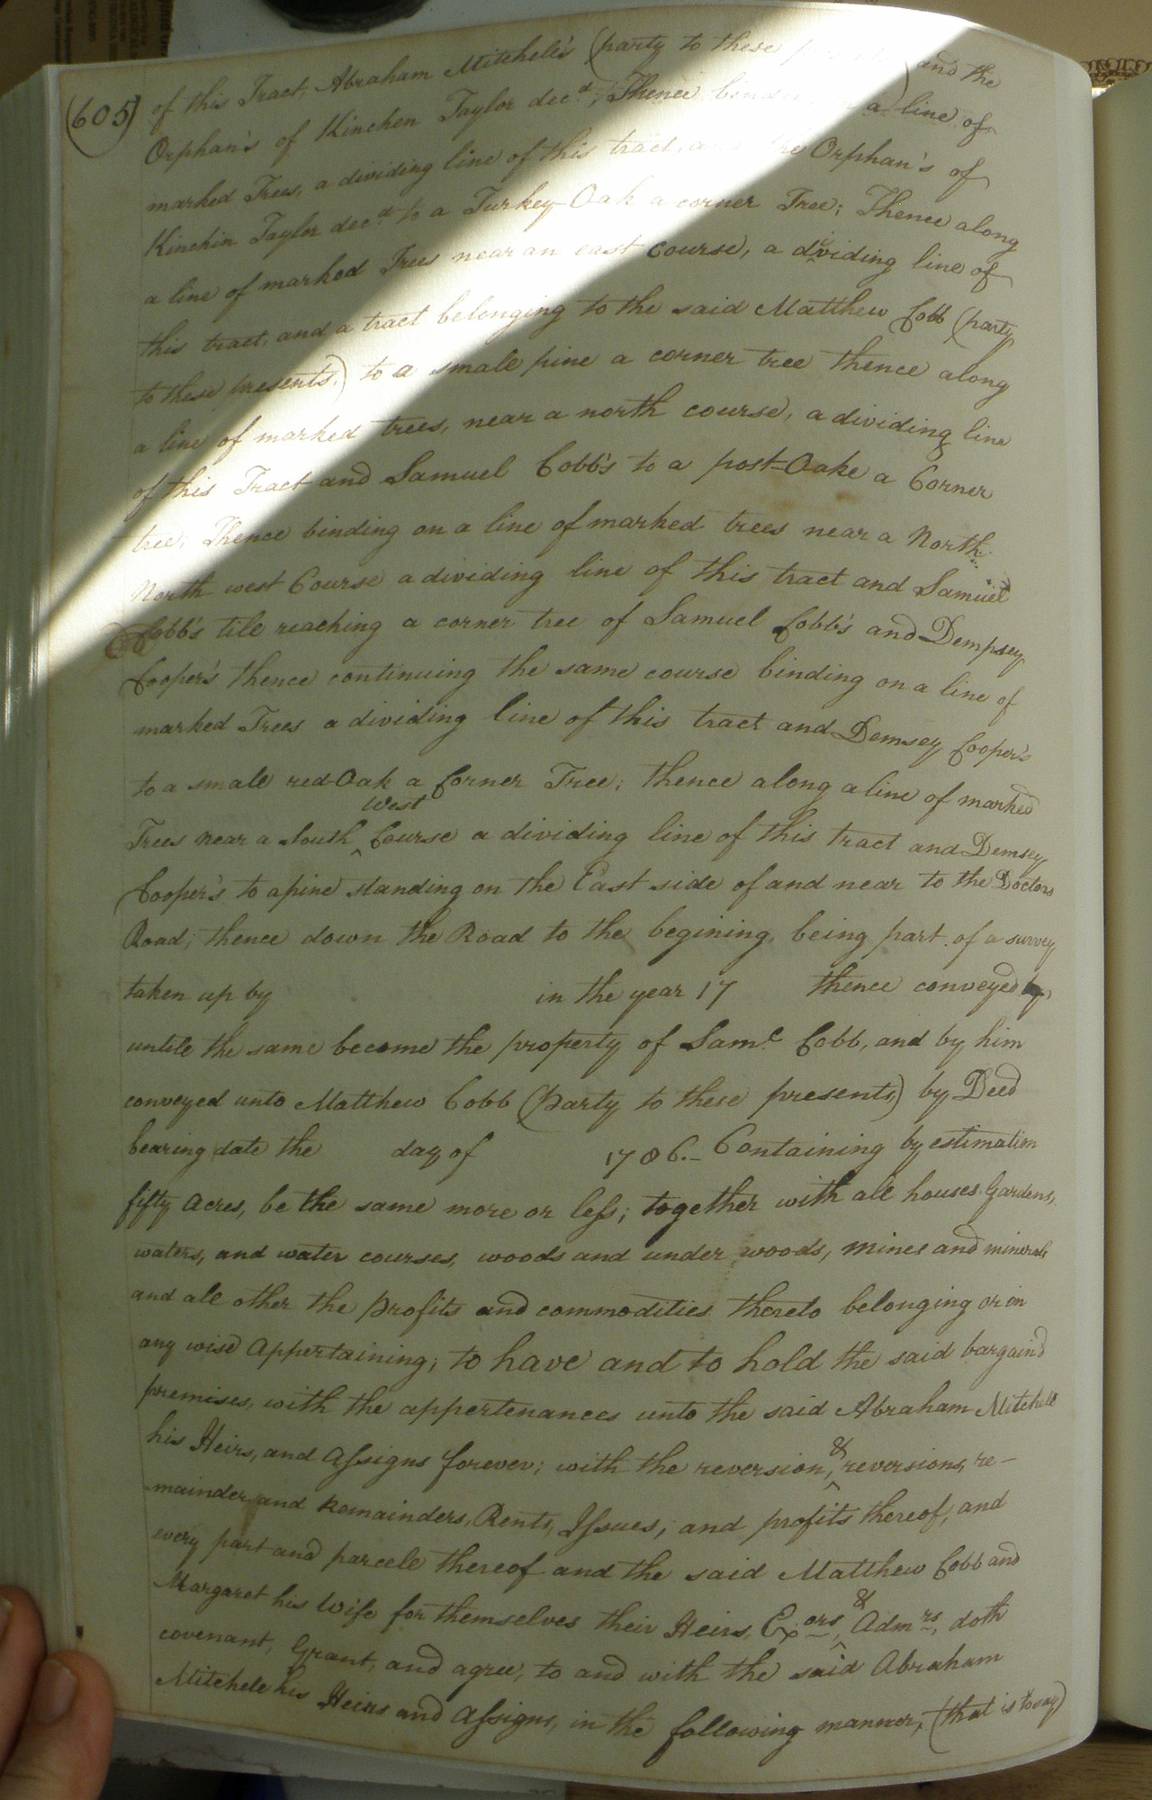 (605)
of this Tract, Abraham Mitchell's (party to these and the
Orphan's of Kinchen Taylor decd; Thence a line of
marked Trees, a dividing line of this tract, and the Orphan's of
Kinchin Taylor decd to a Turkey-Oak a corner Tree; Thence along
a line of marked Trees near an east Course, a dividing line of
this tract, and a tract belonging to the said Matthew Cobb (party
to these presents,) to a small pine a corner tree thence along
a line of marked trees, near a north course, a dividing line
of this Tract and Samuel Cobb's to a post-Oake a Corner
tree, Thence binding on a line of marked trees near a North
North west Course a dividing line of this tract and Samuel
Cobb's till reaching a corner tree of Samuel Cobb's and Dempsey
Cooper's thence continuing the same course binding on a line of
marked Trees a dividing line of this tract and Demsey Cooper's
to a small red-Oak a Corner Tree; thence along a line of marked
Trees near a South ^ West Course a dividing line of this tract and Demsey
Cooper's to a pine standing on the East side of and near to the Doctors
Road; thence down the Road to the begining, being part of a survey
taken up by in the year 17 thence conveyed by
untill the same become the property of Saml. Cobb, and by him
conveyed unto Matthew Cobb (party to these presents) by Deed
bearing date the day of 1786.- Containing by estimation
fifty acres, be the same more or less; together with all houses Gardens,
waters, and water courses, woods and under woods, mines and minerals
and all other the profits and commodities thereto belonging or in
any wise Appertaining; to have and to hold the said bargain'd
premises, with the appertenances unto the said Abraham Mitchell
his Heirs, and Assigns forever; with the reversion, ^ & reversions, re-
mainder and Remainders, Rents, Issues, and profits thereof, and
every part and parcele thereof and the said Matthew Cobb and
Margaret his Wife for themselves their Heirs, Exors, ^ & Admrs, doth
covenant, Grant, and agree, to and with the said Abraham
Mitchell his Heirs and Assigns, in the following manner, (that is to say)